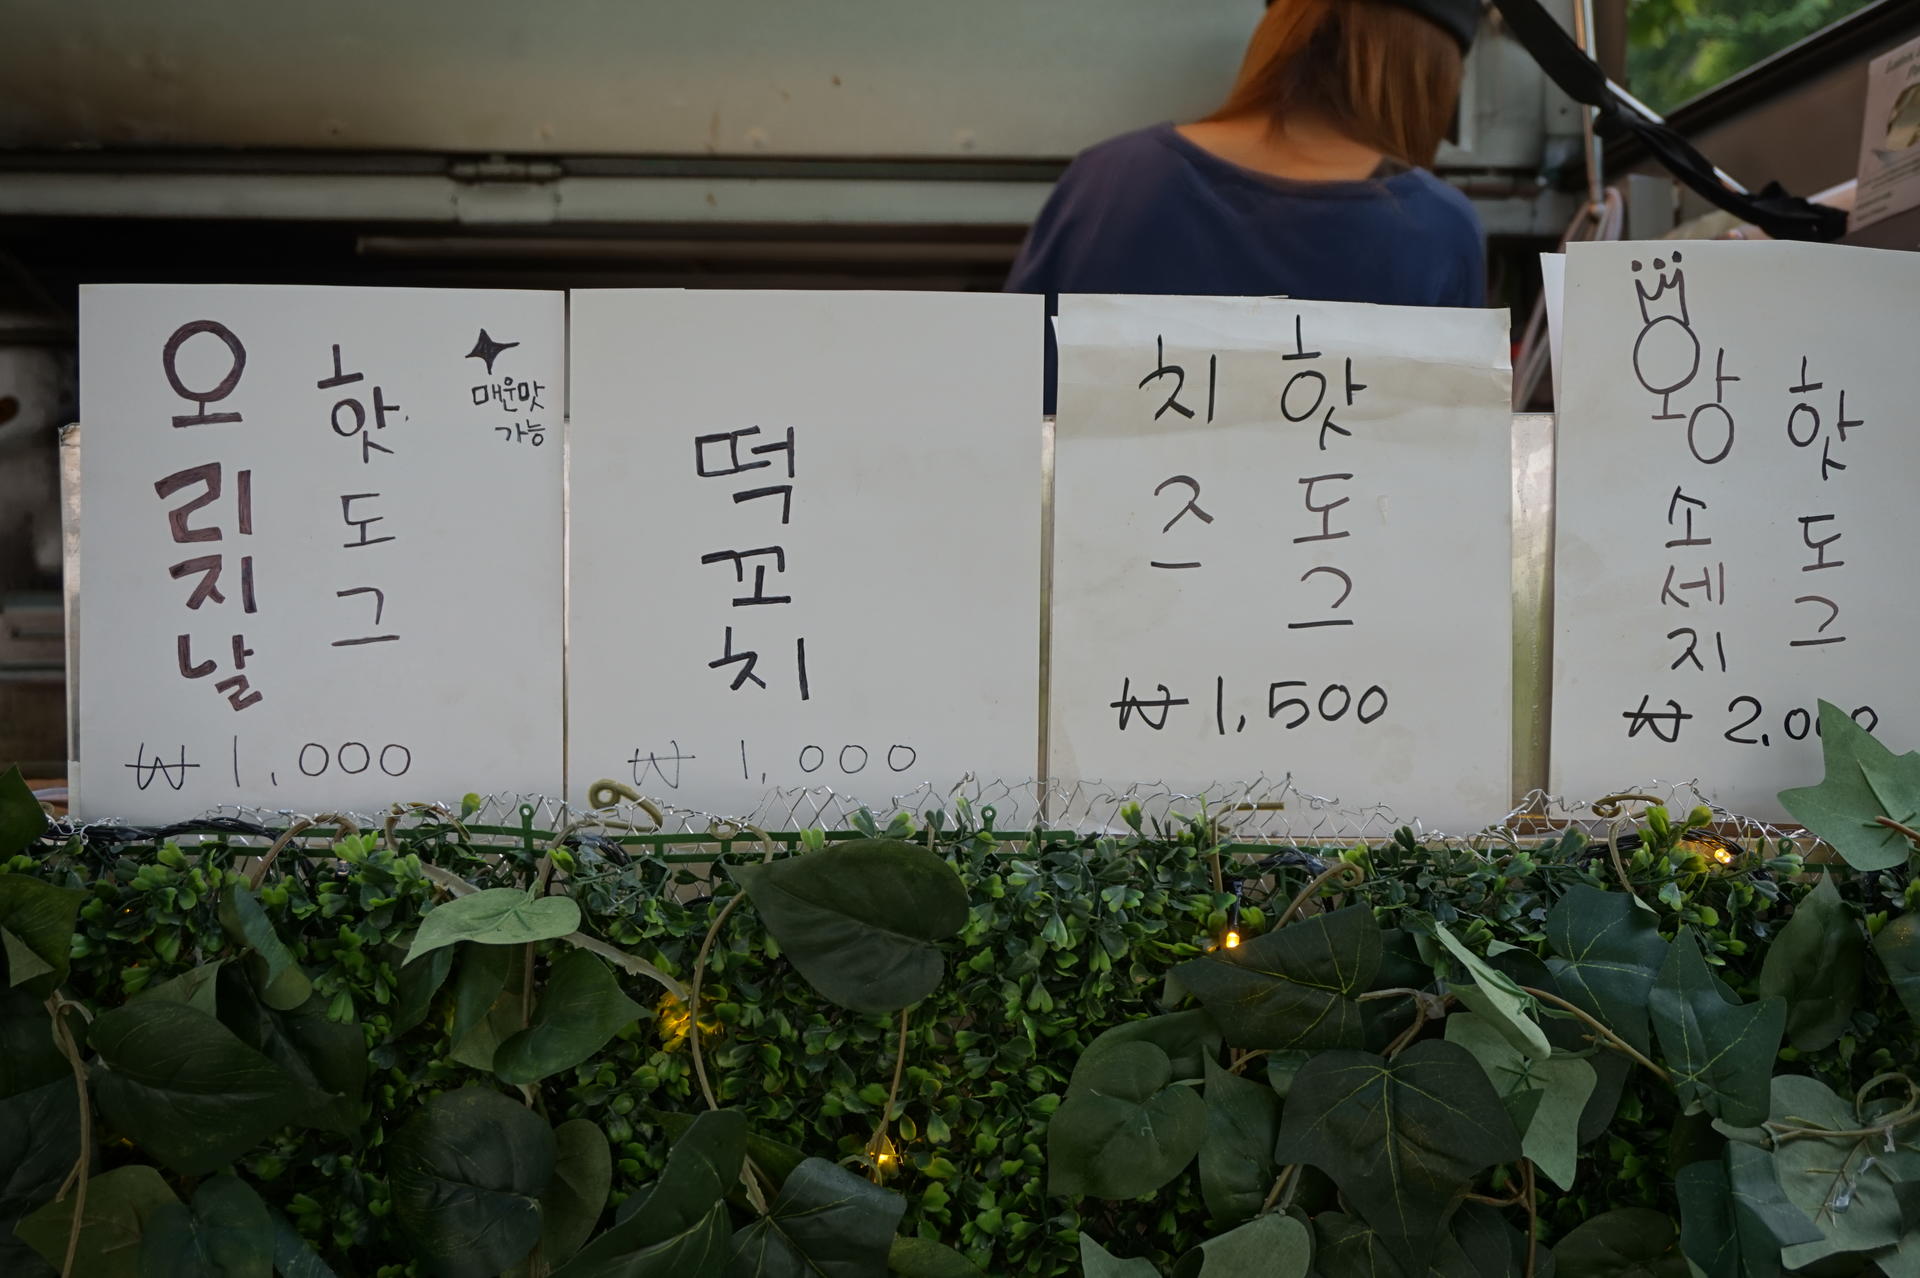 오리지날
핫도그
매운맛
가능
₩ 1,000
떡꼬치
₩ 1,000
치즈
핫도그
₩ 1,500
왕소세지
핫도그
₩ 2,000